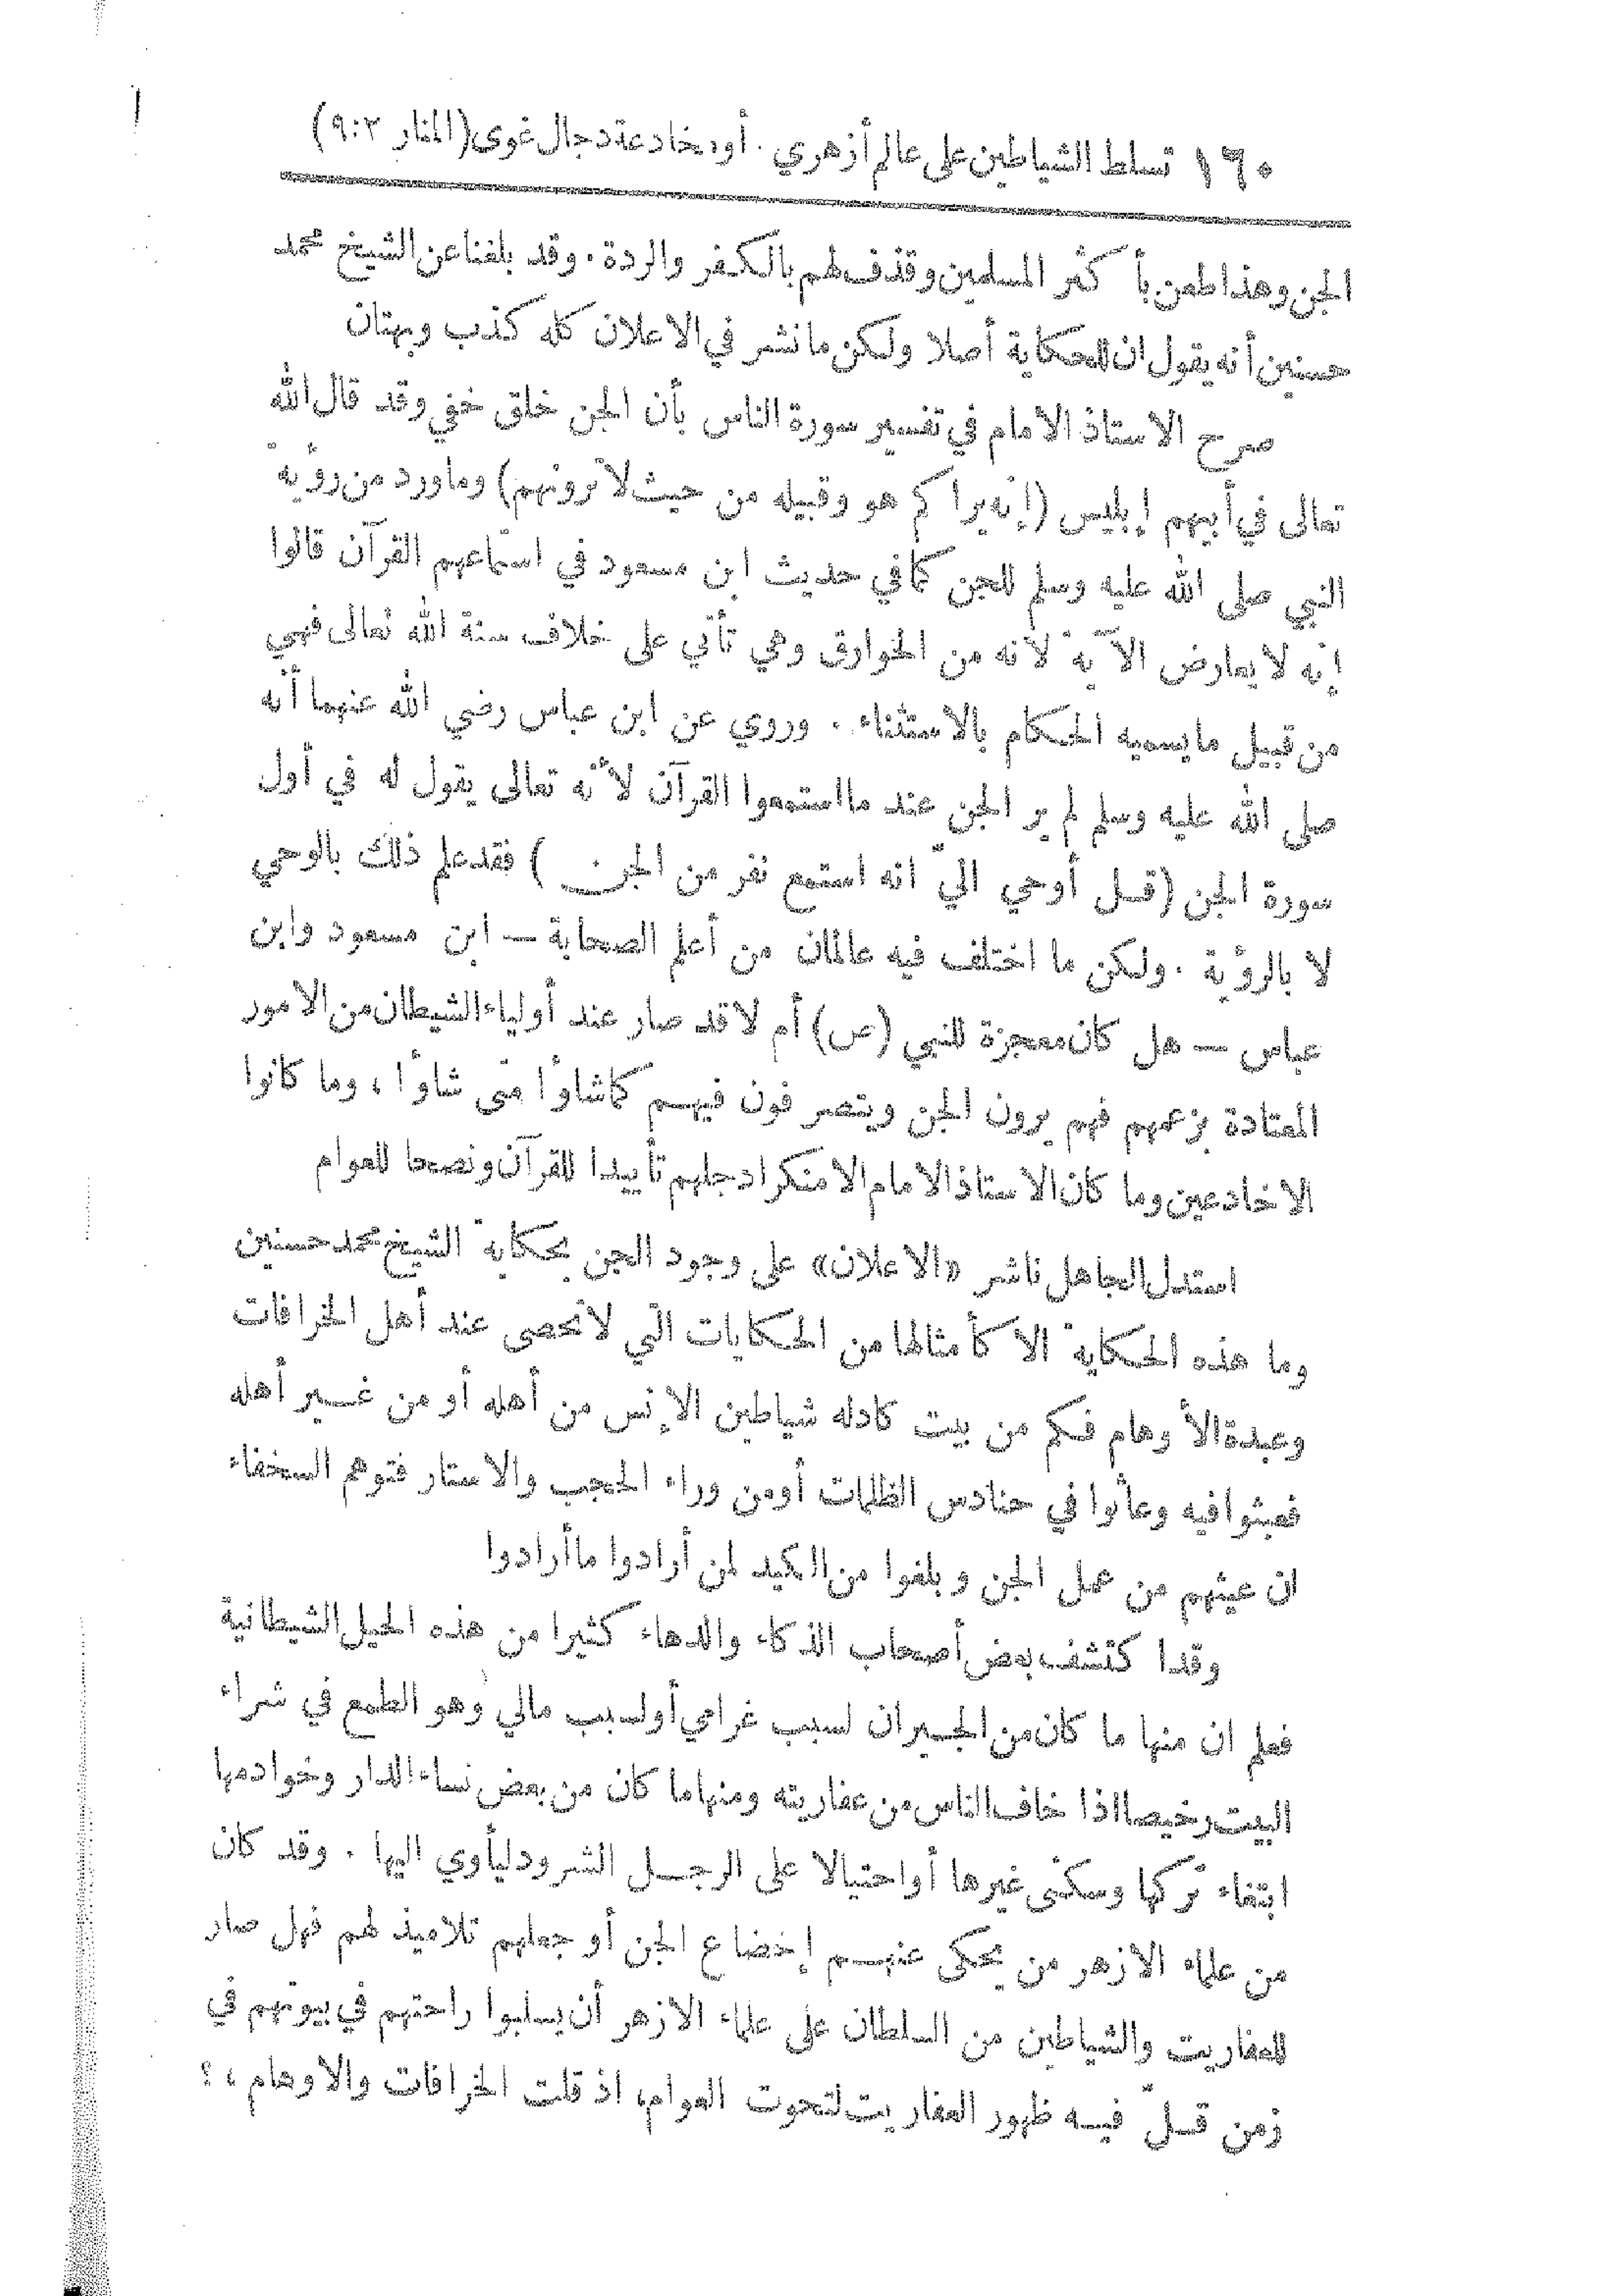 ١٦٠ تسلط الشياطين على عالم أزهري . أو مخادعة دجال غوى (المنار ٩:٢)
الجن وهذا طعن بأكثر المسلمين وقذف لهم بالكفر والردة . وقد بلغنا عن الشيخ محمد
حسنين أنه يقول ان للحكاية أصلا ولكن ما نشر في الاعلان كله كذب وبهتان
صرح الاستاذ الامام في تفسير سورة الناس بأن الجن خلق خفي وقد قال الله
تعالى في أبيهم إبليس (إنه يراكم هو وقبيله من حيث لا ترونهم) وما ورد من رؤية
النبي صلى الله عليه وسلم للجن كما في حديث ابن مسعود في استماعهم القرآن قالوا
إنه لا يعارض الآية لأنه من الخوارق وهي تأتي على خلاف سنة الله تعالى فهي
من قبيل ما يسميه الحكام بالاستثناء . وروي عن ابن عباس رضي الله عنهما أنه
صلى الله عليه وسلم لم ير الجن عند ما استمعوا القرآن لأنه تعالى يقول له في أول
سورة الجن (قل أوحي اليّ انه استمع نفر من الجن) فقد علم ذلك بالوحي
لا بالرؤية . ولكن ما اختلف فيه عالمان من أعلم الصحابة — ابن مسعود وابن
عباس — هل كان معجزة للنبي (ص) أم لا قد صار عند أولياء الشيطان من الامور
المعتادة بزعمهم فهم يرون الجن ويتصرفون فيهم كما شاؤا متى شاؤا ، وما كانوا
الا خادعين وما كان الاستاذ الامام الا منكرا دجلهم تأييدا للقرآن ونصحا للعوام
استدل الجاهل ناشر «الاعلان» على وجود الجن بحكاية الشيخ محمد حسنين
وما هذه الحكاية الا كأمثالها من الحكايات التي لا تحصى عند أهل الخرافات
وعبدة الأوهام فكم من بيت كاد له شياطين الإنس من أهله أو من غير أهله
فعبثوا فيه وعاثوا في حنادس الظلمات أو من وراء الحجب والاستار فتوهم السخفاء
ان عيثهم من عمل الجن وبلغوا من الكيد لمن أرادوا ما أرادوا
وقد اكتشف بعض أصحاب الذكاء والدهاء كثيرا من هذه الحيل الشيطانية
فعلم ان منها ما كان من الجيران لسبب غرامي أو لسبب مالي وهو الطمع في شراء
البيت رخيصا اذا خاف الناس من عفاريته ومنها ما كان من بعض نساء الدار وخوادمها
ابتغاء تركها وسكنى غيرها أو احتيالا على الرجل الشرود ليأوي اليها . وقد كان
من علماء الازهر من يحكى عنهم إخضاع الجن أو جعلهم تلاميذ لهم فهل صار
للعفاريت والشياطين من السلطان على علماء الازهر أن يسلبوا راحتهم في بيوتهم في
زمن قلّ فيه ظهور العفاريت لتحوت العوام، اذ قلت الخرافات والاوهام ، ؟